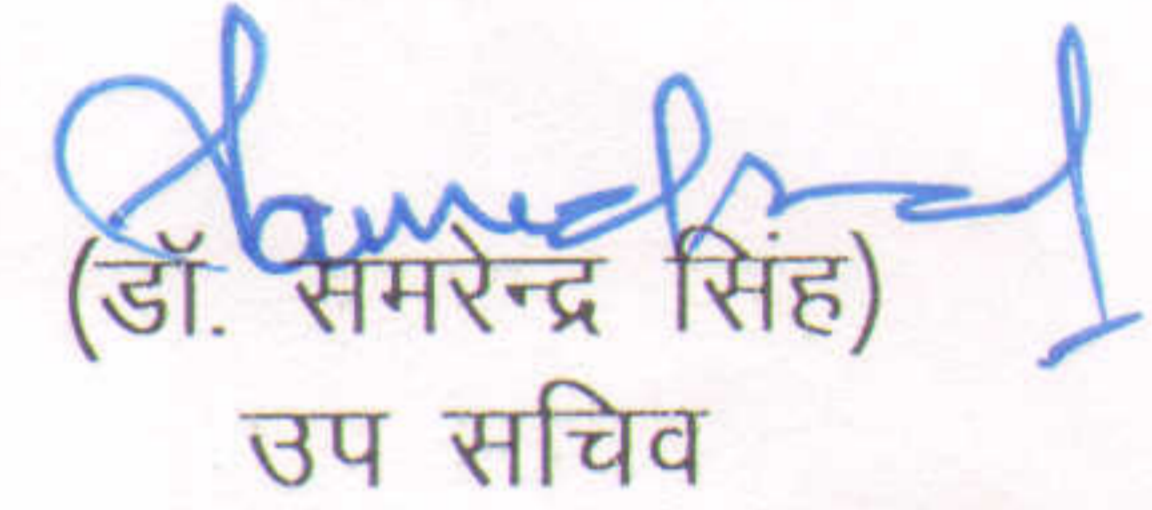 (डॉ. समरेन्द्र सिंह)
उप सचिव